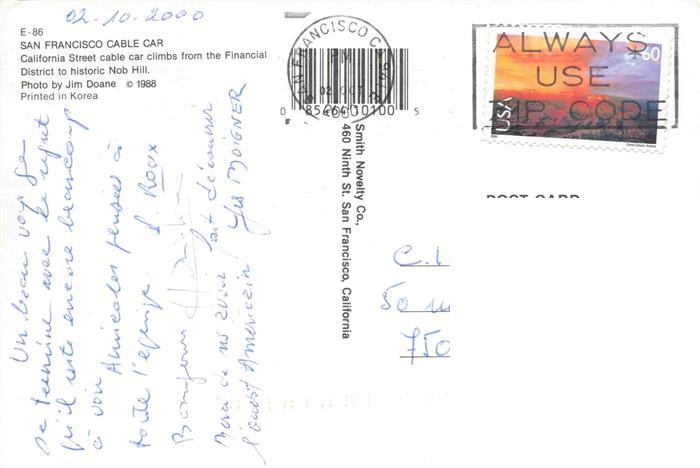 02.10.2000
E-86
SAN FRANCISCO CABLE CAR
California Street cable car climbs from the Financial
District to historic Nob Hill.
Photo by Jim Doane © 1988
Printed in Korea
Un beau voyage
se termine avec le regret
qu'il reste encore beaucoup
à voir Amicales pensées à
toute l'équipe. ROUX
Bonjour
Merci de nous avoir fait découvrir
l'ouest Américain
SAN FRANCISCO CA
PM
02 OCT
0 85466 10100 5
Smith Novelty Co.,
460 Ninth St. San Francisco, California
ALWAYS
USE
ZIP CODE
60
USA
POST CARD
C.I
50
750